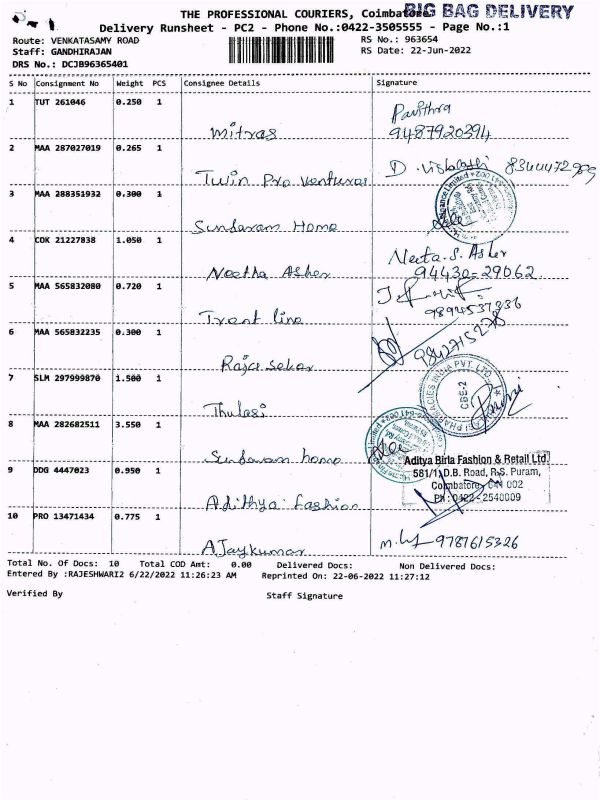 THE PROFESSIONAL COURIERS, Coimbatore
BIG BAG DELIVERY
Delivery Runsheet - PC2 - Phone No.:0422-3505555 - Page No.:1
Route: VENKATASAMY ROAD
RS No.: 963654
Staff: GANDHIRAJAN
RS Date: 22-Jun-2022
DRS No.: DCJB96365401
S No Consignment No Weight PCS Consignee Details Signature
1 TUT 261046 0.250 1
Mitras Pavithra
9487920394
2 MAA 287027019 0.265 1
Twin Pro ventures D. 8344472989
3 MAA 288351932 0.300 1
Sundaram Home
4 COK 21227838 1.050 1
Neetha Asher Neeta.S. Asher
94430-29062
5 MAA 565832080 0.720 1
Trent line 9894537336
6 MAA 565832235 0.300 1
Rajasekar 9842715278
7 SLM 297999870 1.500 1
Thulasi
PHARMACIES INDIA PVT. LTD.
CBE-2
8 MAA 282682511 3.550 1
Sundaram home
9 DDG 4447023 0.950 1
Adithya fashion
Aditya Birla Fashion & Retail Ltd
581/1, D.B. Road, R.S. Puram,
Coimbatore - 641 002
Ph : 0422 - 2540009
10 PRO 13471434 0.775 1
AJaykumar 9787615326
Total No. Of Docs: 10 Total COD Amt: 0.00 Delivered Docs: Non Delivered Docs:
Entered By :RAJESHWARI2 6/22/2022 11:26:23 AM Reprinted On: 22-06-2022 11:27:12
Verified By Staff Signature